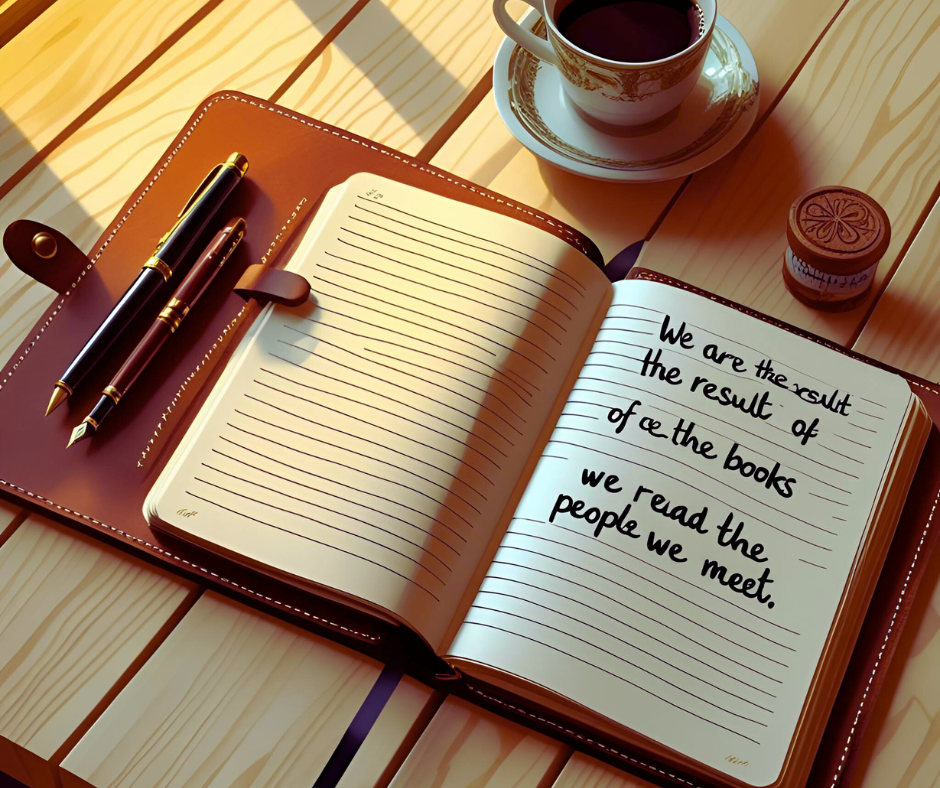 We are the result
the result of
of œ the books
we reuad the
people we meet.